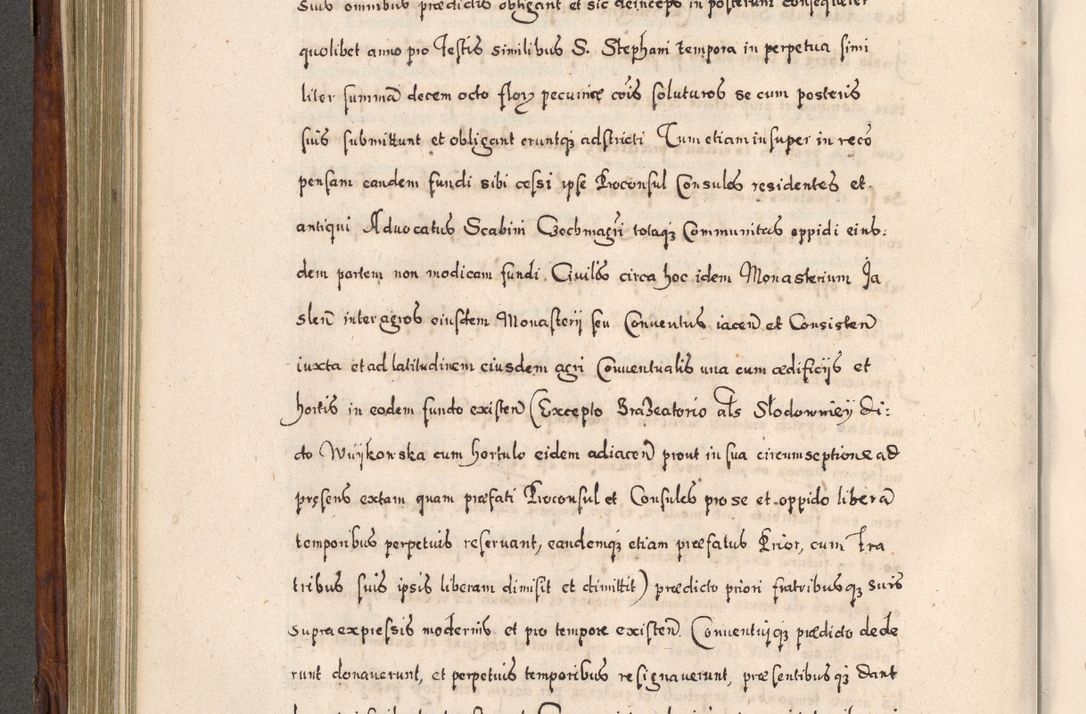 Suis omnibus prædictis obligant et sic deinceps in posterum consequeter
quolibet anno pro Festis similibus S. Stephani tempora in perpetua simi
liter summã decem octo floꝝ pecuniæ cõis soluturos se cum posteris
suis submittunt et obligant eruntqꝫ adstricti Tum etiam in super in recõ
pensam eandem fundi sibi cessi ipse Proconsul Consules residentes et
antiqui Advocatus Scabini Czechmagri totaqꝫ Communitas oppidi eius:
dem partem non modicam fundi Civilis circa hoc idem Monasterium Ja
slen̄ inter agros eiusdem Monasterij seu Conventus iacen̄ et Consisten̄
iuxta et ad latitudinem eiusdem agri Conventualis una cum ædificijs et
hortis in eodem fundo existen̄ (Excepto Braxeatorio als Slodowniey Di:
cto Wuykowska cum hortulo eidem adiacen̄ prout in sua circumseptione ad
pręsens extam quam præfati Proconsul et Consules pro se et oppido liberã
temporibus perpetuis reservant, eandemqꝫ etiam præfatus Prior, cum Fra
tribus suis ipsis liberam dimisit et dimittit) prædicto priori fratribusqꝫ suis
supra expressis modernis et pro tempore existen̄. Conventuiqꝫ prædicto dede
runt donaverunt, et perpetuis temporibus resignaverunt, præsentibusqꝫ dant